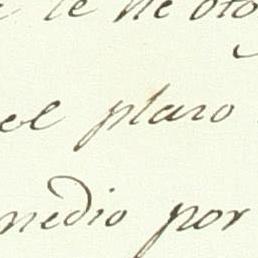 le he oto
el plazo
medio por